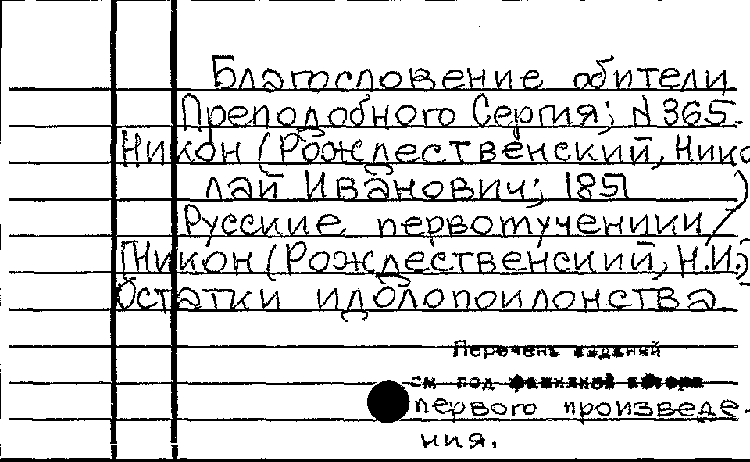 Благословение обители
Преподобного Сергия; N 365.
Никон (Рождественский, Нико-
лай Иванович; 1851 )
Русские первомученики /
Никон (Рождественский, Н.И.)
Остатки идолопоклонства
Перечень изданий
см под фамилией автора
первого произведе-
ния.